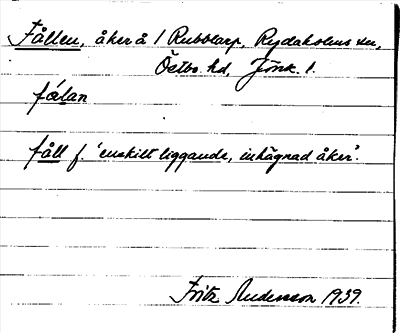 Fållen, åker å 1 Rubbtarp, Rydaholms sn,
Östbo hd, Jönk. l.
fålan
fåll f. 'enskilt liggande, inhägnad åker'.
Fritz Anderson 1939.